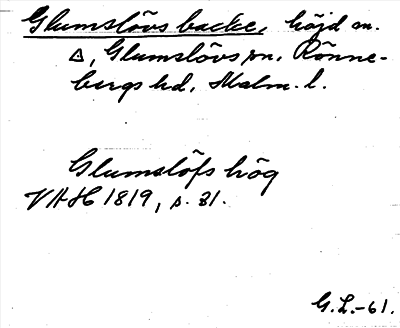 Glumslövs backe, höjd m.
△, Glumslövs sn. Rönne-
bergs hd. Malm. l.
Glumslöfs hög
VAH 1819, s. 31.
G.L.-61.